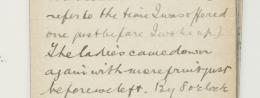 refer to the time I was offered
one just before I woke up)
The ladies came down
again with more fruit just
before we left. By 5 o'clock